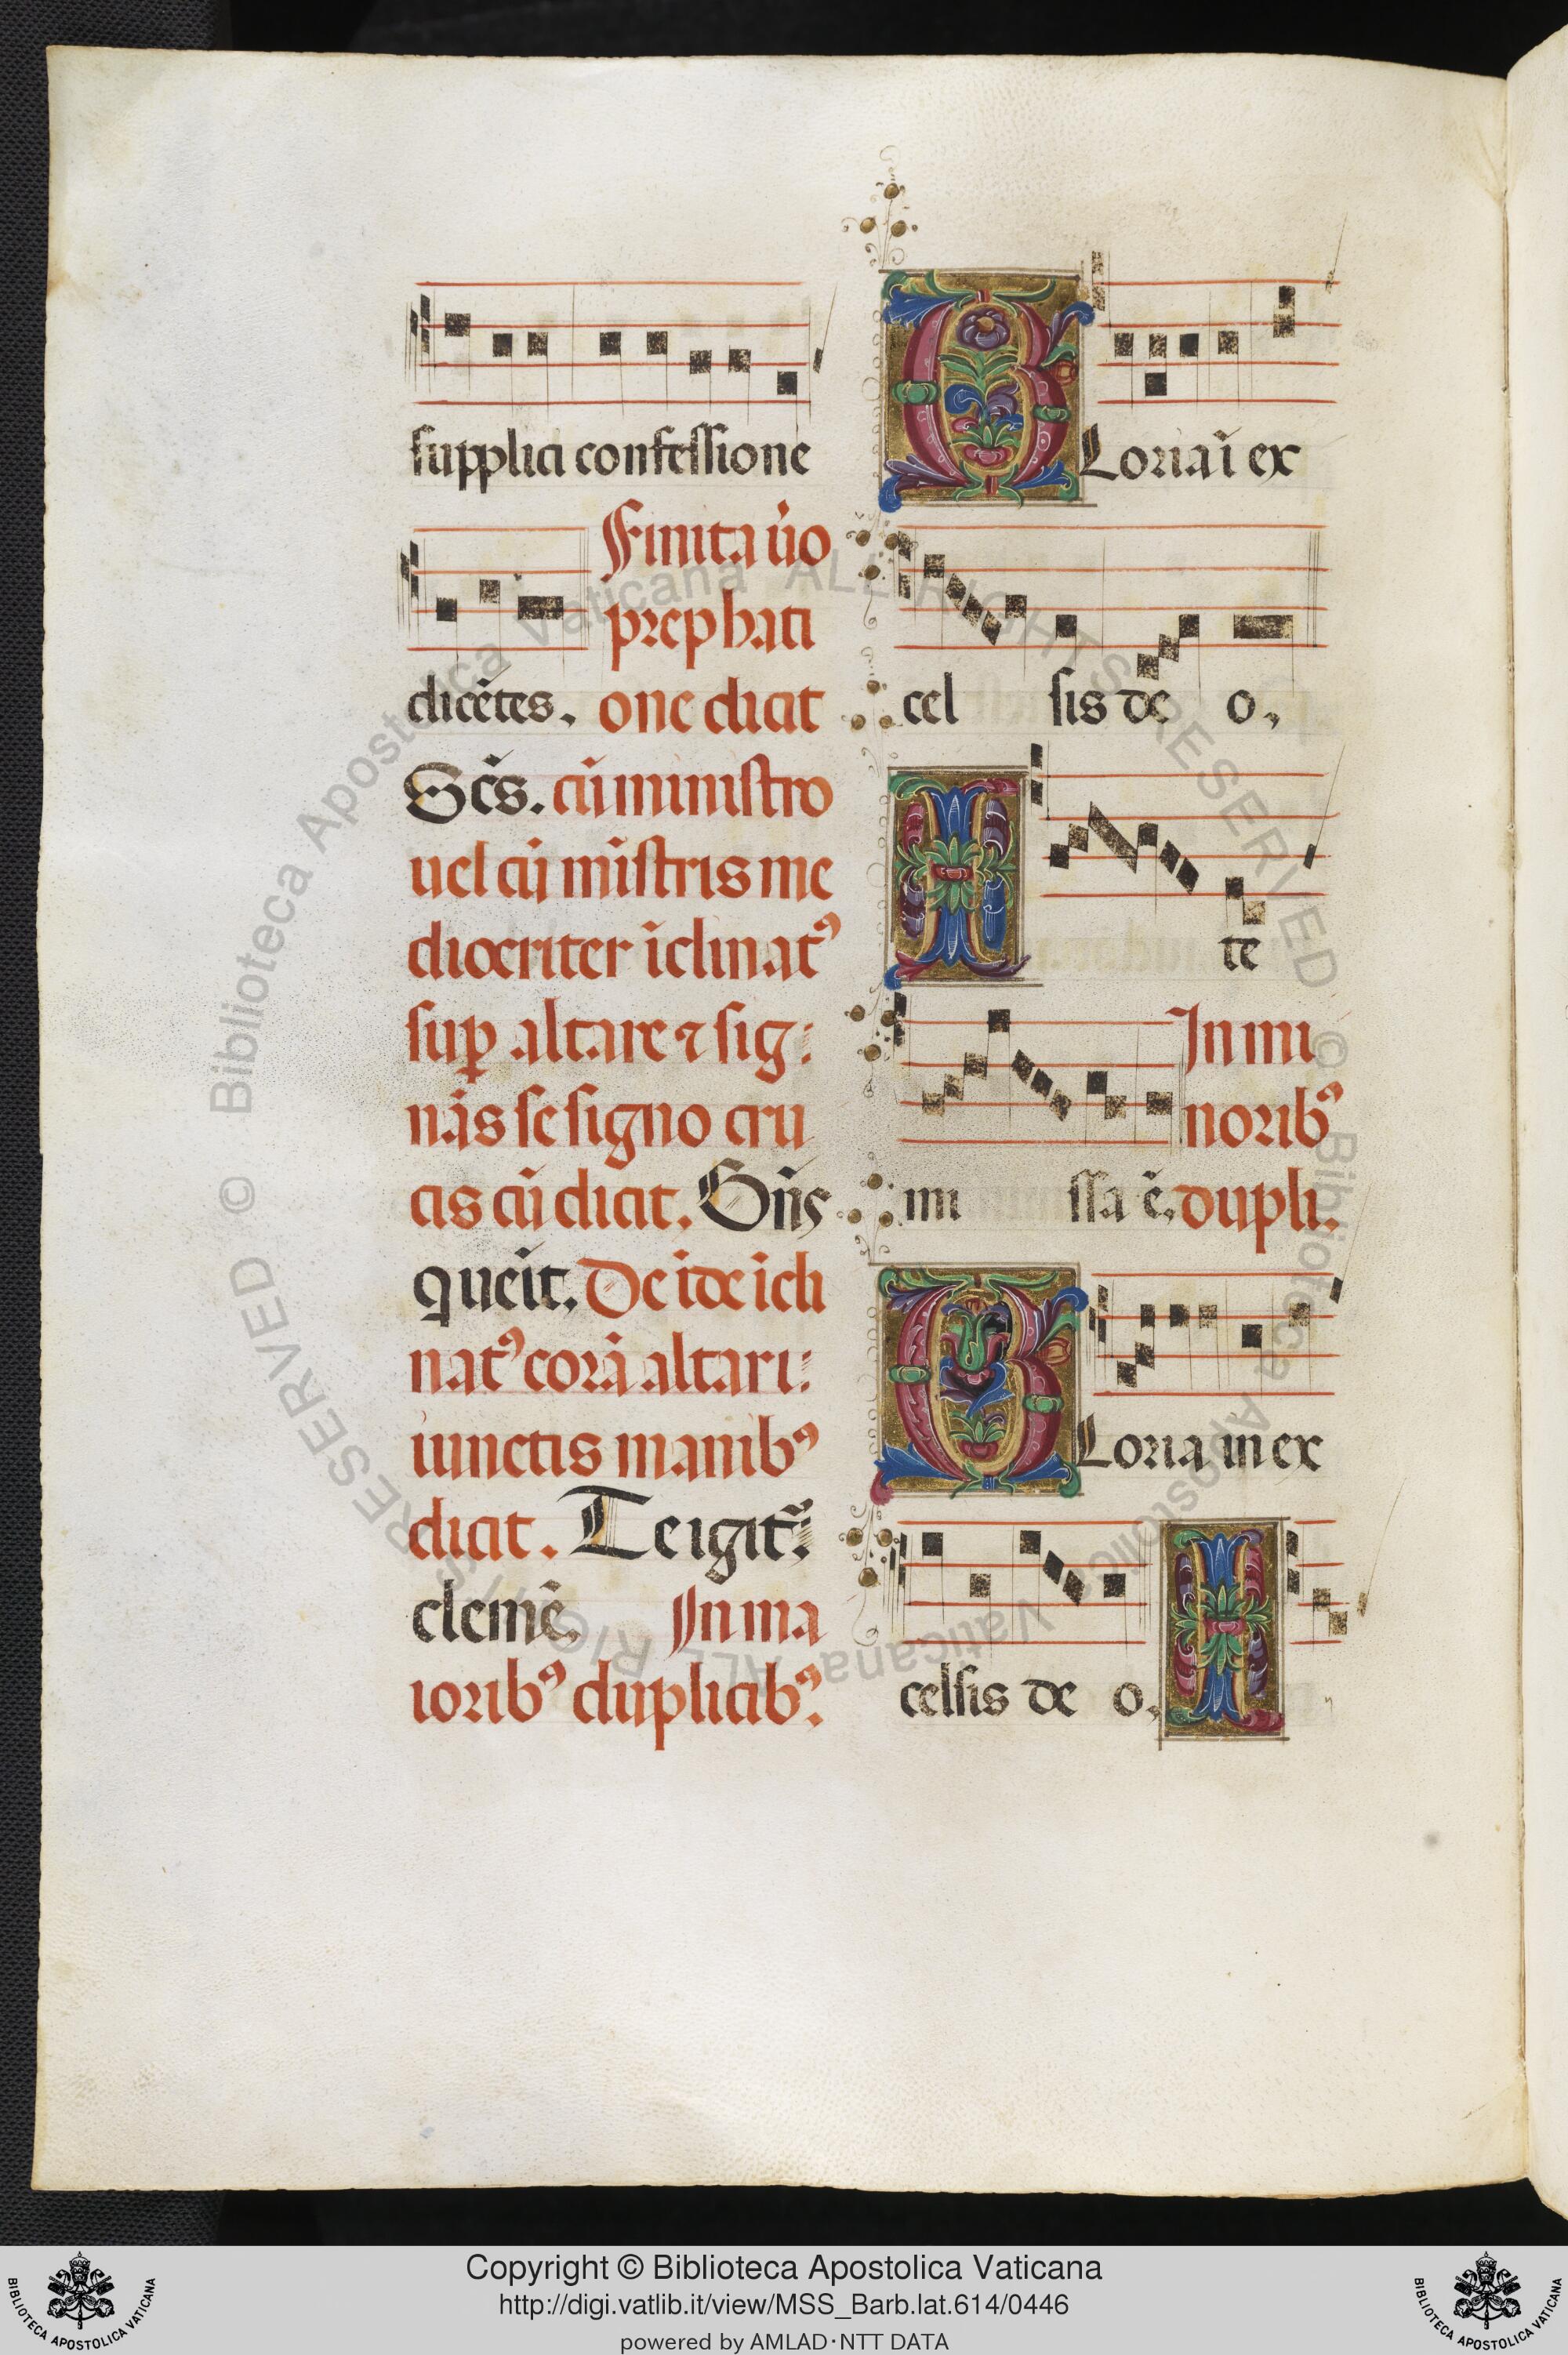 supplici confessione
Finita v̾o
prephati
dicẽtes. one dicit
Sc̃s. cũ ministro
uel cũ mĩstris me
diocriter ĩclinatꝰ
suꝑ altare ⁊ sig⸗
nãs se signo cru
cis cũ dicit. Bñs
q ueĩt. Deĩde ĩcli
natꝰ corã altari⸗
iunctis manibꝰ
dicit. Te igit᷑⸗
clemẽ. In ma
ioribꝰ duplicibꝰ.
GLoria ĩ ex
cel sis de o.
I te
In mi
noribꝰ
mi ssa ẽ. dupli.
GLoria in ex
celsis de o. I
Copyright © Biblioteca Apostolica Vaticana
http://digi.vatlib.it/view/MSS_Barb.lat.614/0446
powered by AMLAD·NTT DATA
BIBLIOTECA APOSTOLICA VATICANA
BIBLIOTECA APOSTOLICA VATICANA
© Biblioteca Apostolica Vaticana ALL RIGHTS RESERVED
© Biblioteca Apostolica Vaticana ALL RIGHTS RESERVED